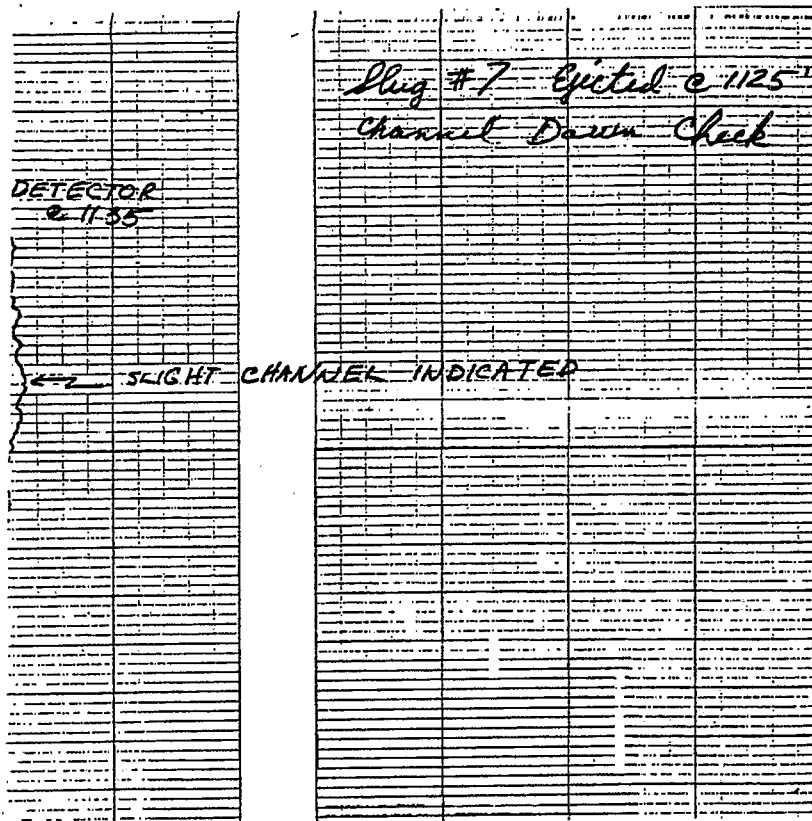 Slug #7 Ejected @ 1125'
Channel Down Check
DETECTOR
@ 1135
SLIGHT CHANNEL INDICATED